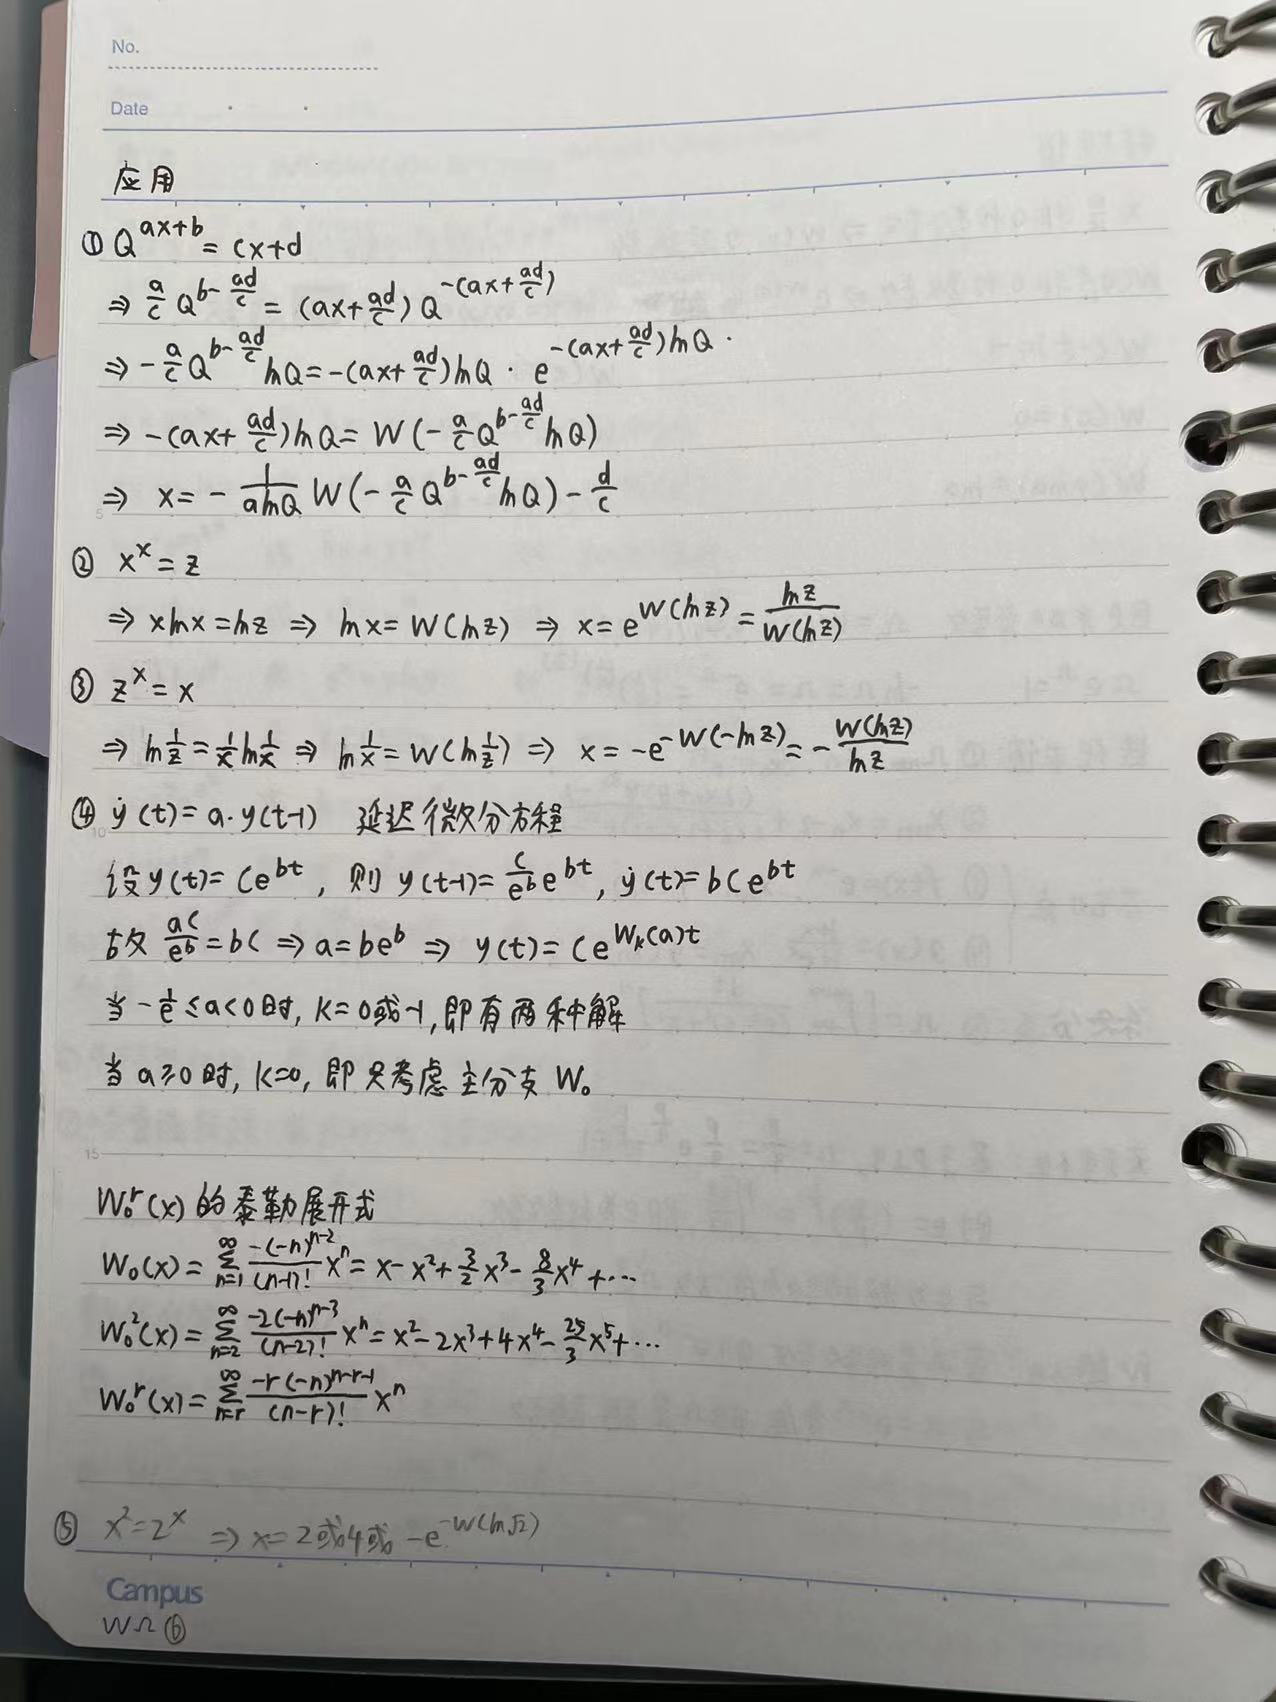 No.
Date
应用
① Q^{ax+b} = cx+d
⇒ \frac{a}{c} Q^{b-\frac{ad}{c}} = (ax+\frac{ad}{c}) Q^{-(ax+\frac{ad}{c})}
⇒ -\frac{a}{c} Q^{b-\frac{ad}{c}} lnQ = -(ax+\frac{ad}{c}) lnQ · e^{-(ax+\frac{ad}{c}) lnQ} .
⇒ -(ax+\frac{ad}{c}) lnQ = W(-\frac{a}{c} Q^{b-\frac{ad}{c}} lnQ)
5
⇒ x = -\frac{1}{alnQ} W(-\frac{a}{c} Q^{b-\frac{ad}{c}} lnQ) - \frac{d}{c}
② x^x = z
⇒ xlnx = lnz ⇒ lnx = W(lnz) ⇒ x = e^{W(lnz)} = \frac{lnz}{W(lnz)}
③ z^x = x
⇒ ln\frac{1}{z} = \frac{1}{x} ln\frac{1}{x} ⇒ ln\frac{1}{x} = W(ln\frac{1}{z}) ⇒ x = -e^{-W(-lnz)} = -\frac{W(lnz)}{lnz}
④ ẏ(t) = a·y(t-1) 延迟微分方程
10
设 y(t) = Ce^{bt}, 则 y(t-1) = \frac{C}{e^b} e^{bt}, ẏ(t) = bCe^{bt}
故 \frac{aC}{e^b} = bC ⇒ a = be^b ⇒ y(t) = Ce^{W_k(a)t}
当 -\frac{1}{e} ≤ a < 0 时, k = 0或-1, 即有两种解
当 a ≥ 0 时, k=0, 即只考虑主分支 W₀
15
W₀^r(x) 的泰勒展开式
W₀(x) = \sum_{n=1}^{∞} \frac{-(-n)^{n-2}}{(n-1)!} x^n = x - x² + \frac{3}{2}x³ - \frac{8}{3}x⁴ + ⋯
W₀²(x) = \sum_{n=2}^{∞} \frac{-2(-n)^{n-3}}{(n-2)!} x^n = x² - 2x³ + 4x⁴ - \frac{25}{3}x⁵ + ⋯
W₀^r(x) = \sum_{n=r}^{∞} \frac{-r(-n)^{n-r-1}}{(n-r)!} x^n
⑤ x² = 2^x ⇒ x = 2或4或 -e^{-W(ln√2)}
Campus
WΩ ⑥